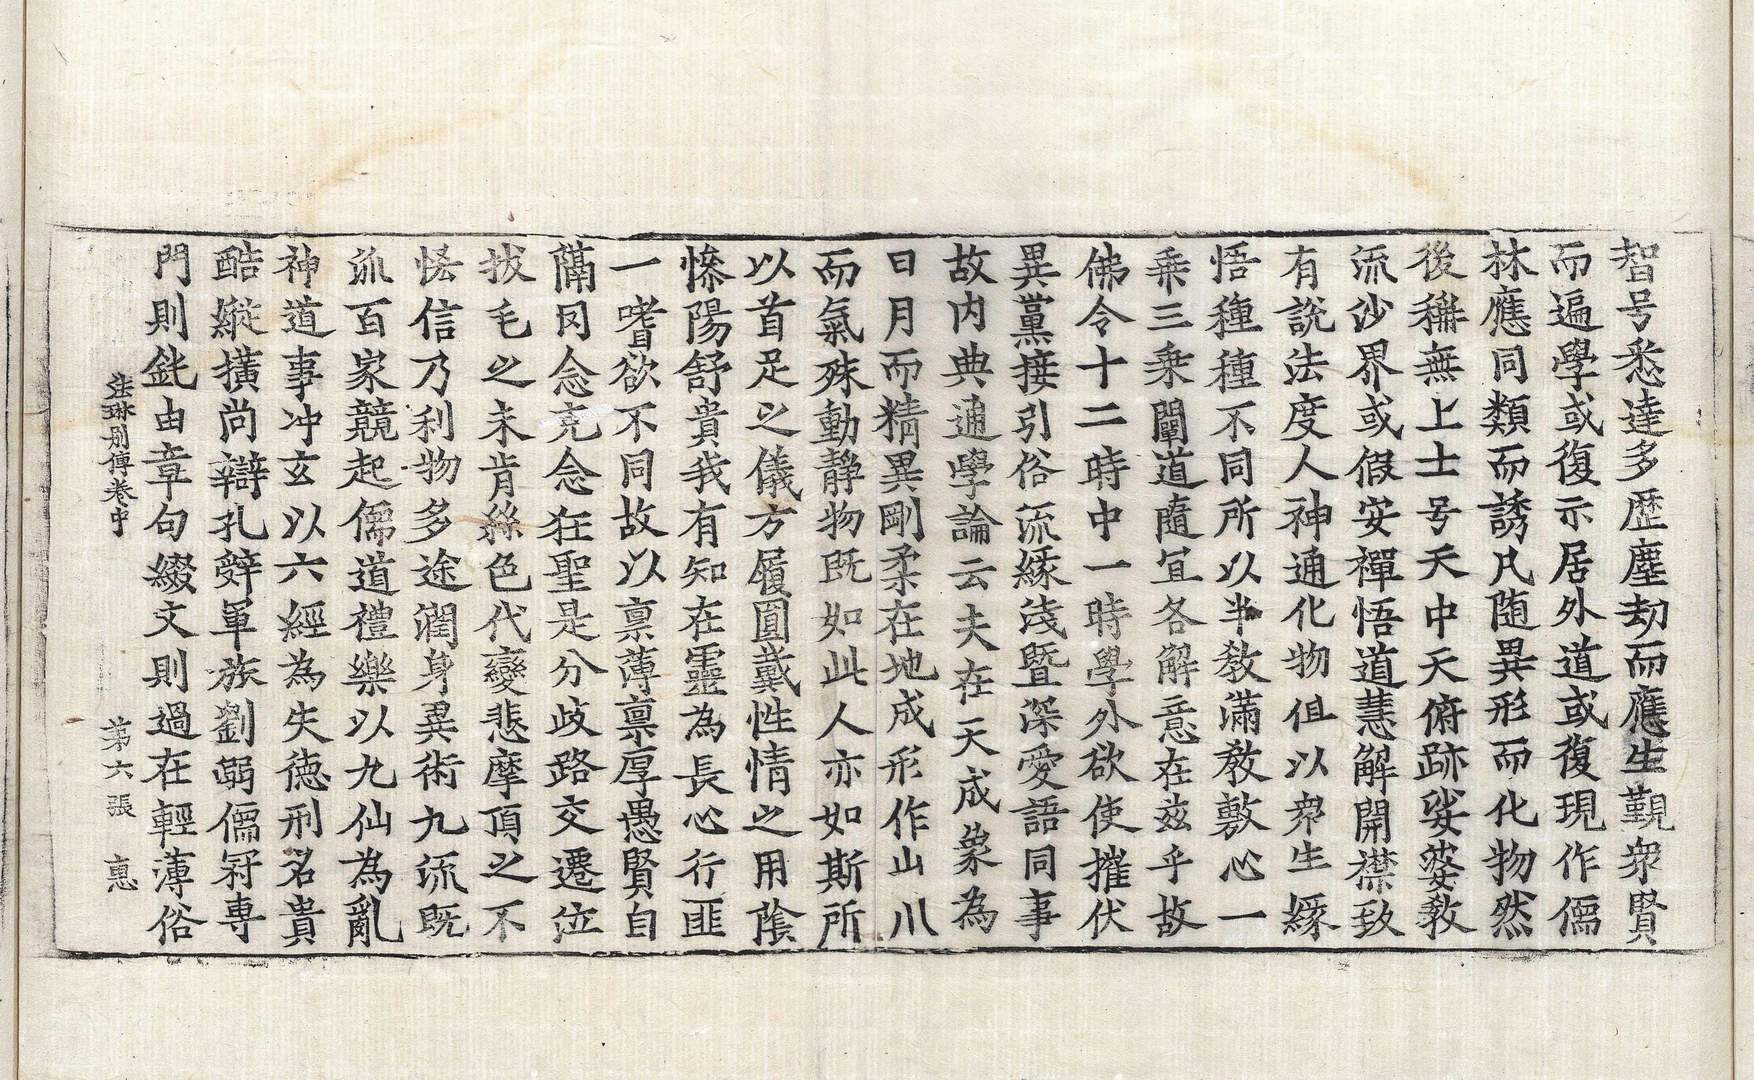 智号悉達多歷塵劫而應生覲衆賢
而遍學或復示居外道或復現作儒
林應同類而誘凡随異形而化物然
後稱無上士号天中天俯跡娑婆敎
流沙界或假安禪悟道慧解開襟致
有說法度人神通化物但以衆生緣
悟種種不同所以半敎滿敎敷心一
乘三乘闡道隨冝各解意在兹乎故
佛令十二時中一時學外欲使摧伏
異黨接引俗流緣淺曁深愛語同事
故内典通學論云夫在天成象為
日月而精異剛柔在地成形作山川
而氣殊動靜物旣如此人亦如斯所
以首足之儀方履圓戴性情之用陰
慘陽舒貴我有知在靈為長心行匪
一嗜欲不同故以禀薄禀厚愚賢自
隔罔念克念狂聖是分歧路交遷泣
拔毛之未肯絲色代變悲摩頂之不
恡信乃利物多途潤身異術九流旣
派百家競起儒道禮樂以九仙為亂
神道事冲玄以六經為失德刑名貴
酷縱擴尚辯孔辤軍旅劉弱儒冠專
門則由章句綴文則過在輕薄俗
法琳别傳卷中　第六張　惠